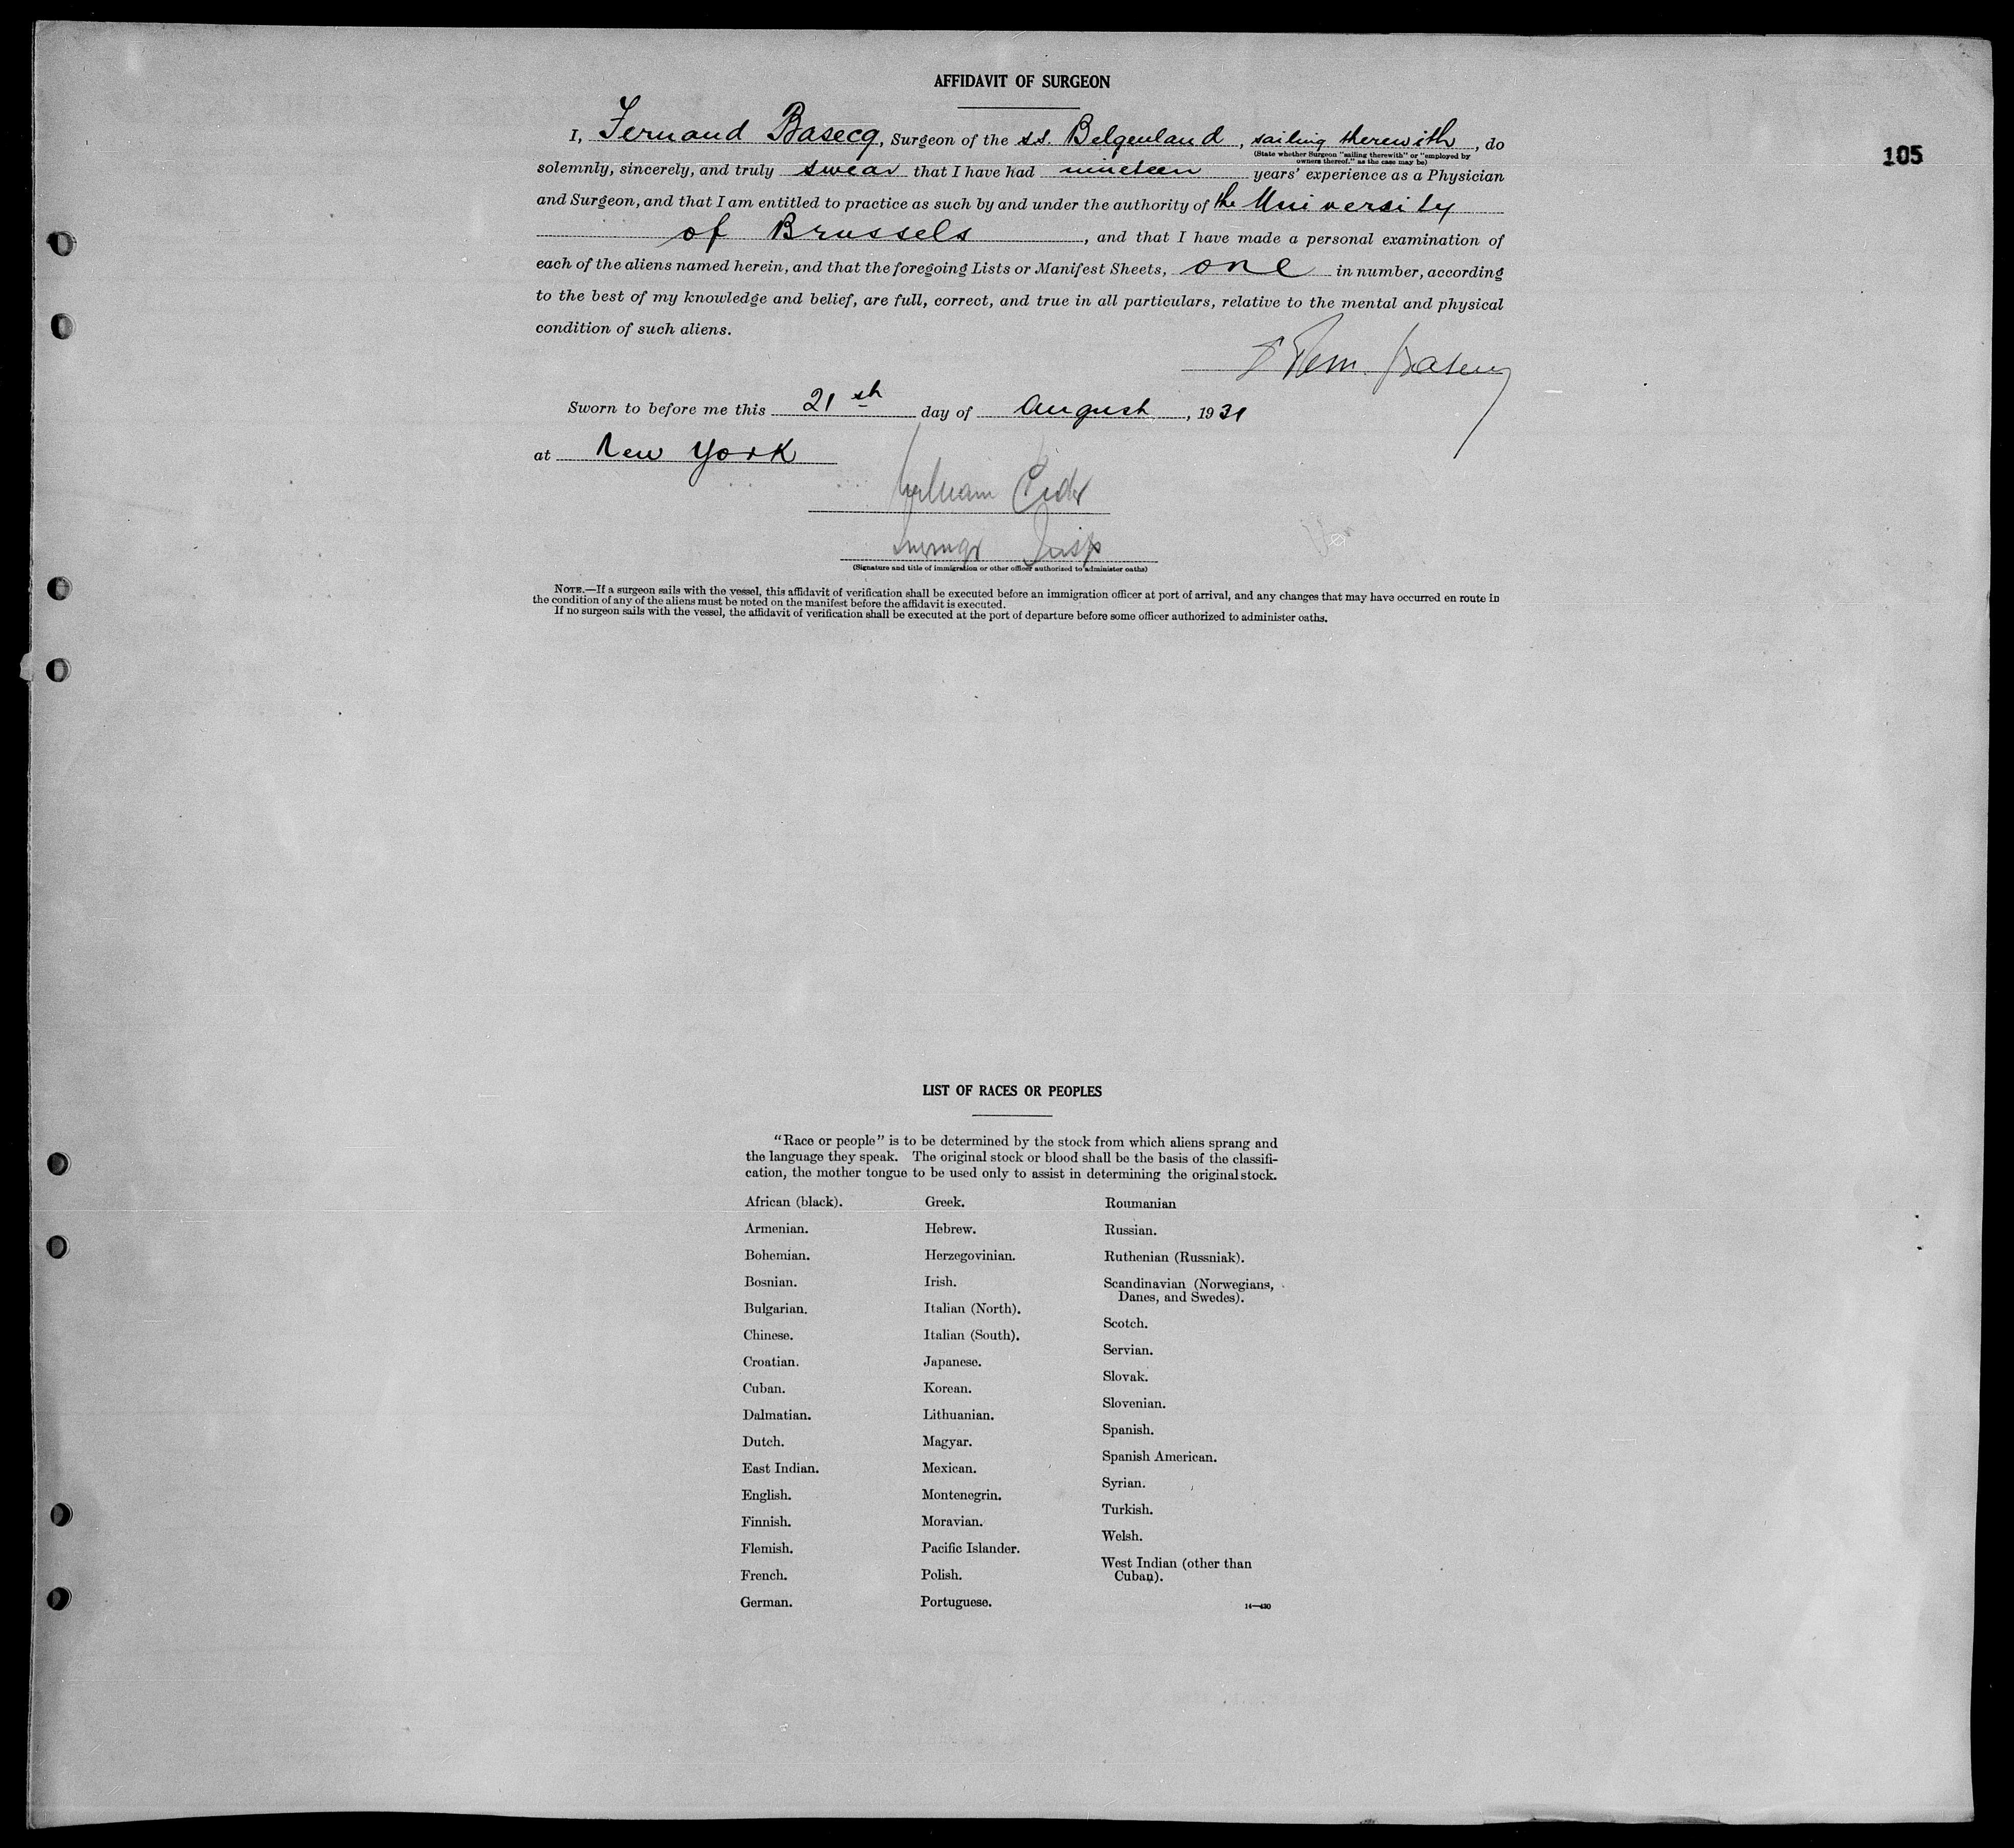 AFFIDAVIT OF SURGEON
105
I, Fernand Basecq, Surgeon of the s.s. Belgenland, sailing therewith, do
(State whether Surgeon "sailing therewith" or "employed by
owners thereof," as the case may be)
solemnly, sincerely, and truly swear that I have had nineteen years' experience as a Physician
and Surgeon, and that I am entitled to practice as such by and under the authority of the University
of Brussels, and that I have made a personal examination of
each of the aliens named herein, and that the foregoing Lists or Manifest Sheets, one in number, according
to the best of my knowledge and belief, are full, correct, and true in all particulars, relative to the mental and physical
condition of such aliens.
Sworn to before me this 21st day of August, 1931
at New York
William
Insp
(Signature and title of immigration or other officer authorized to administer oaths)
NOTE.—If a surgeon sails with the vessel, this affidavit of verification shall be executed before an immigration officer at port of arrival, and any changes that may have occurred en route in
the condition of any of the aliens must be noted on the manifest before the affidavit is executed.
If no surgeon sails with the vessel, the affidavit of verification shall be executed at the port of departure before some officer authorized to administer oaths.
LIST OF RACES OR PEOPLES
"Race or people" is to be determined by the stock from which aliens sprang and
the language they speak. The original stock or blood shall be the basis of the classifi-
cation, the mother tongue to be used only to assist in determining the original stock.
African (black).
Armenian.
Bohemian.
Bosnian.
Bulgarian.
Chinese.
Croatian.
Cuban.
Dalmatian.
Dutch.
East Indian.
English.
Finnish.
Flemish.
French.
German.
Greek.
Hebrew.
Herzegovinian.
Irish.
Italian (North).
Italian (South).
Japanese.
Korean.
Lithuanian.
Magyar.
Mexican.
Montenegrin.
Moravian.
Pacific Islander.
Polish.
Portuguese.
Roumanian
Russian.
Ruthenian (Russniak).
Scandinavian (Norwegians,
Danes, and Swedes).
Scotch.
Servian.
Slovak.
Slovenian.
Spanish.
Spanish American.
Syrian.
Turkish.
Welsh.
West Indian (other than
Cuban).
14—430